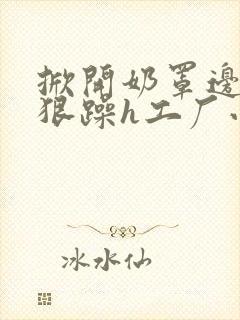 掀開奶罩邊
狠躁h工厂
冰水仙